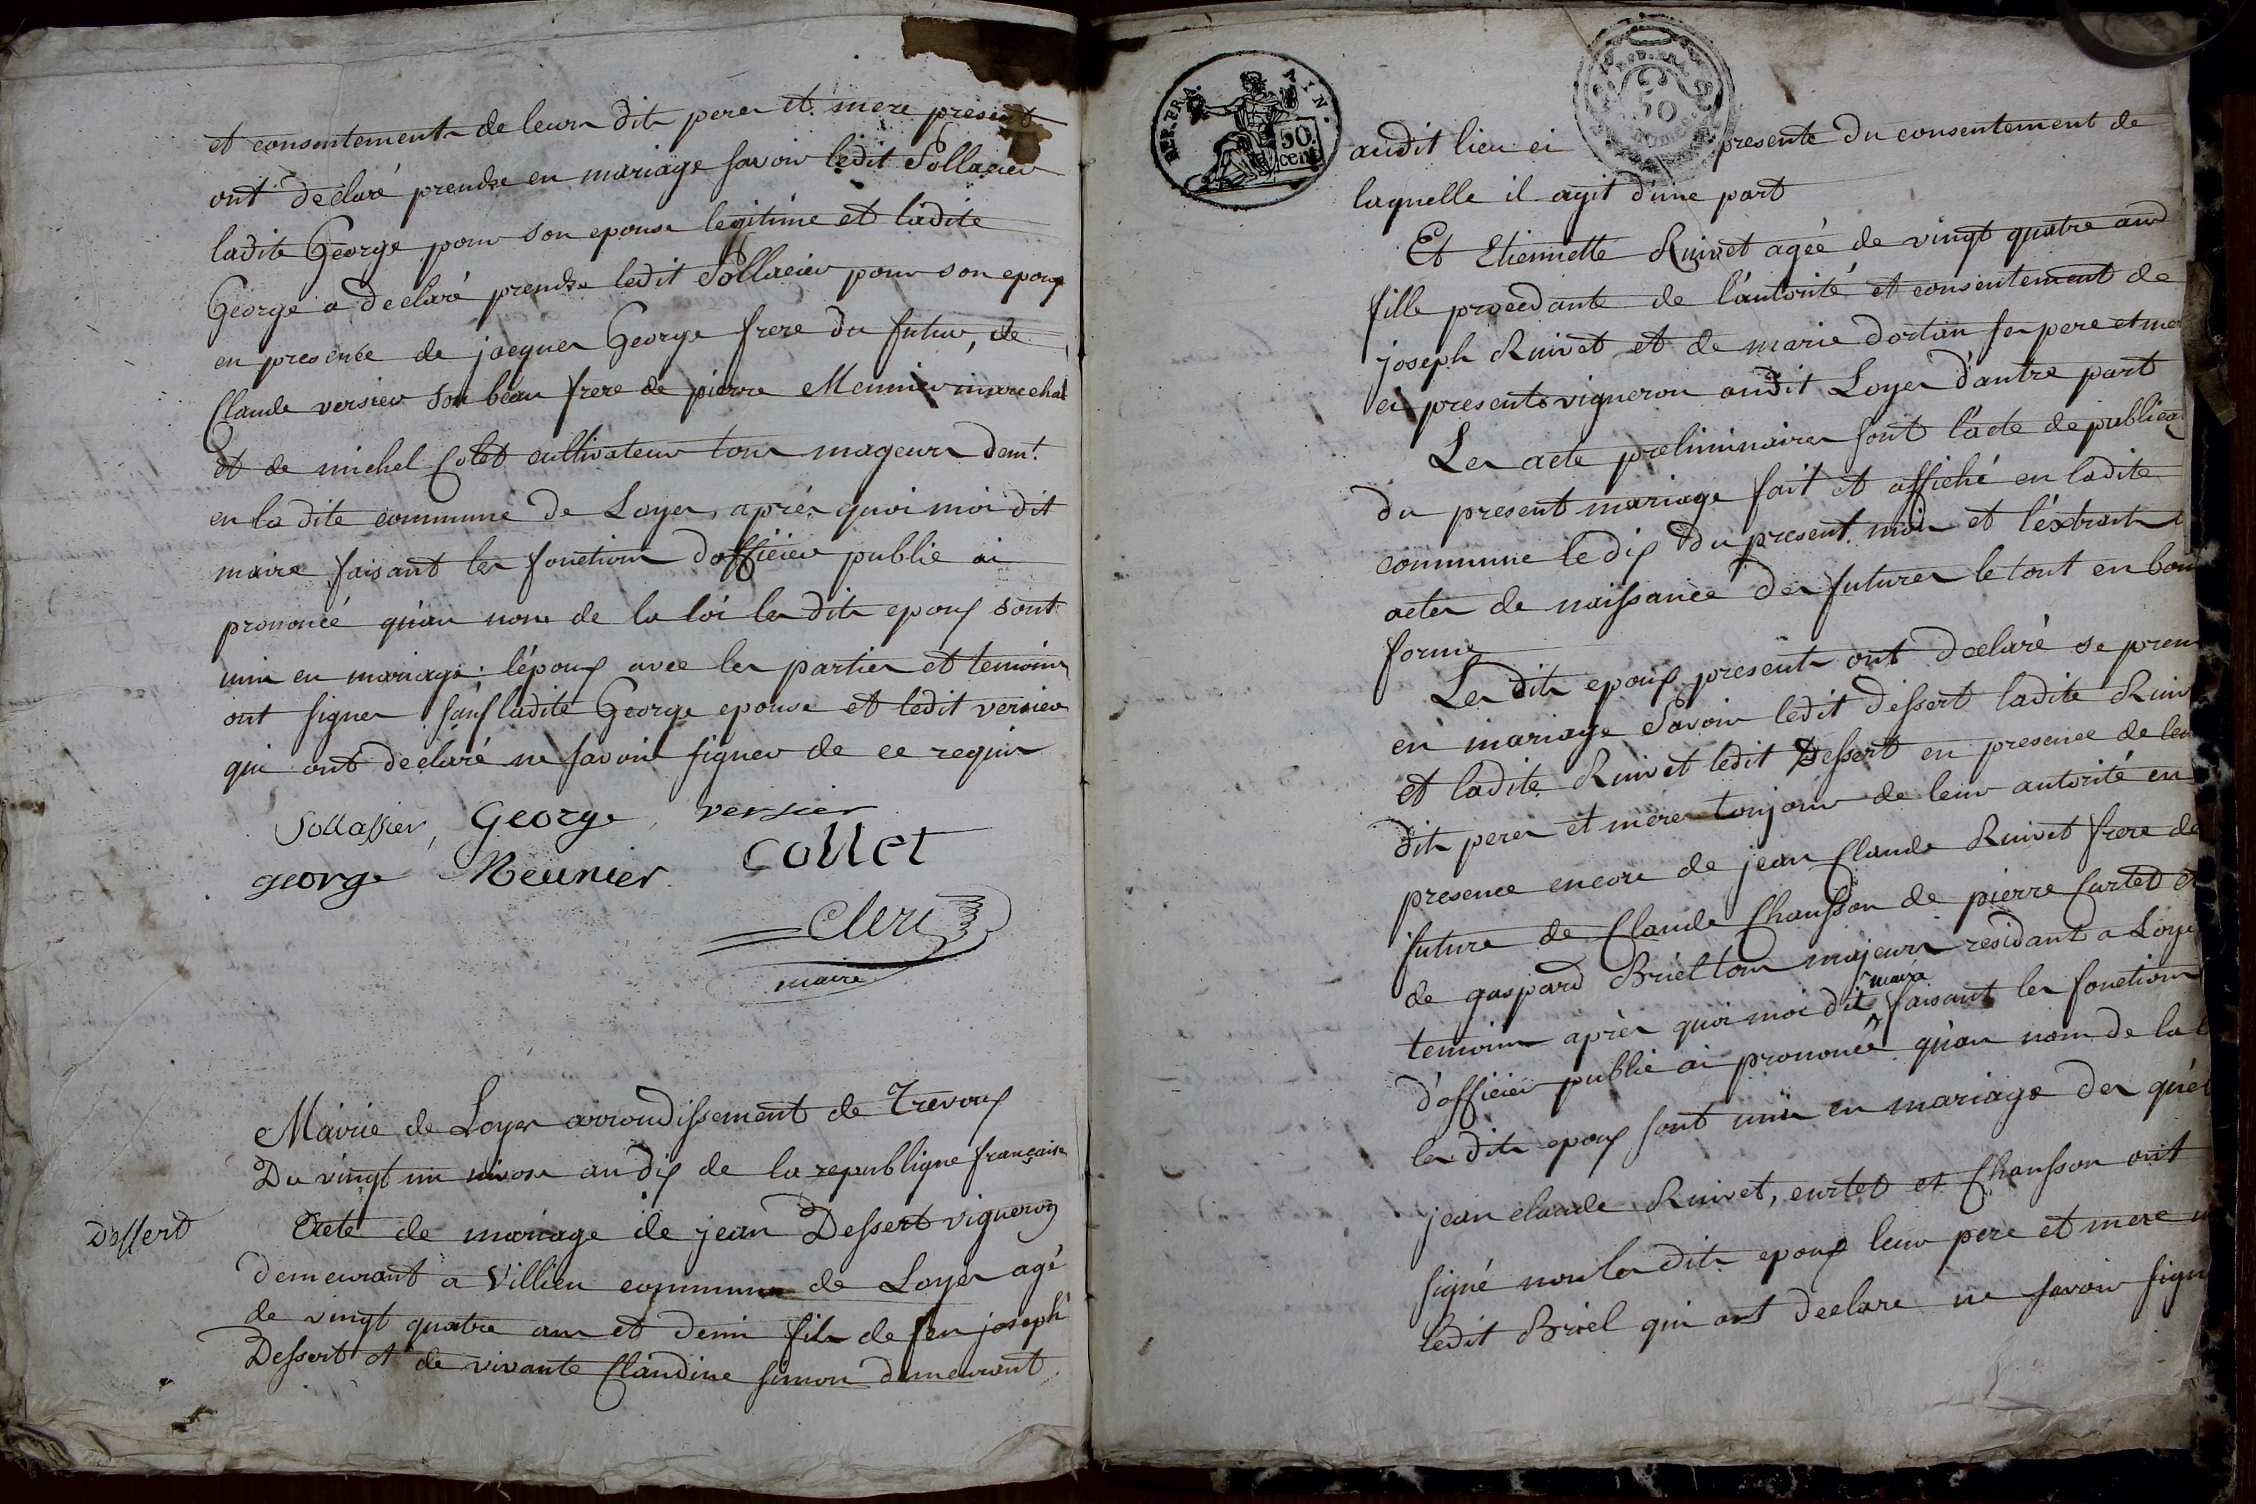 et consentements de leurs dits peres et mere present
ont declaré prendre en mariage savoir ledit Sollacier
ladite George pour son epouse legitime et ladite
George a declaré prendre ledit Sollacier pour son epoux
en presence de jacques George frere du futur, de
Claude versier son beau frere de pierre Meunier marechal
et de michel Colet cultivateur tous mageurs demt.
en la dite commune de Loyes, après quoi moi dit
maire faisant les fonctions d'officier public ai
prononcé qu'au nom de la loi les dits epoux sont
unis en mariage. lépoux avec les parties et temoins
ont signés sauf ladite George epouse et ledit versier
qui ont declaré ne savoir signer de ce requis
Sollassier, George, versier
george Meunier Collet
Clerc
maire
Mairie de Loyes arrondissement de Trevoux
Du vingt un nivose an dix de la republique française
Dessert
Acte de mariage de jean Dessert vigneron
demeurant a Villieu commune de Loyes agé
de vingt quatre ans et demi fils de feu joseph
Dessert et de vivante Claudine simon demeurant
REP. FRA. AIN.
50.
cent.
50
audit lieu ci presente du consentement de
laquelle il agit d'une part
Et Etiennette Ruivet agée de vingt quatre ans
fille procedante de l'autorité et consentement de
joseph Ruivet et de marie dortan ses pere et mer
ci presents vigneron audit Loyes d'autre part
Les acte preliminaires sont l'acte de publica
du present mariage fait et affiché en ladite
commune le dix du present mois et l'éxtrait
actes de naissance des futures le tout en bon
forme
Les dits epoux presents ont declaré se pren
en mariage Savoir ledit dessert ladite Ruiv
et ladite Ruivet ledit Dessert en presence de leu
dits peres et mere toujours de leur autorité en
presence encore de jean Claude Ruivet frere de
future de Claude Chausson de pierre Curtet et
de gaspard Briel tous majeurs residant a Loye
temoins après quoi moi dit maire faisant les fonctions
d'officier public ai prononcé qu'au nom de la l
les dits epoux sont unis en mariage des quel
jean claude Ruivet, curtet et Chausson ont
signé non les dits epoux leur pere et mere n
ledit Briel qui ont declare ne savoir sign